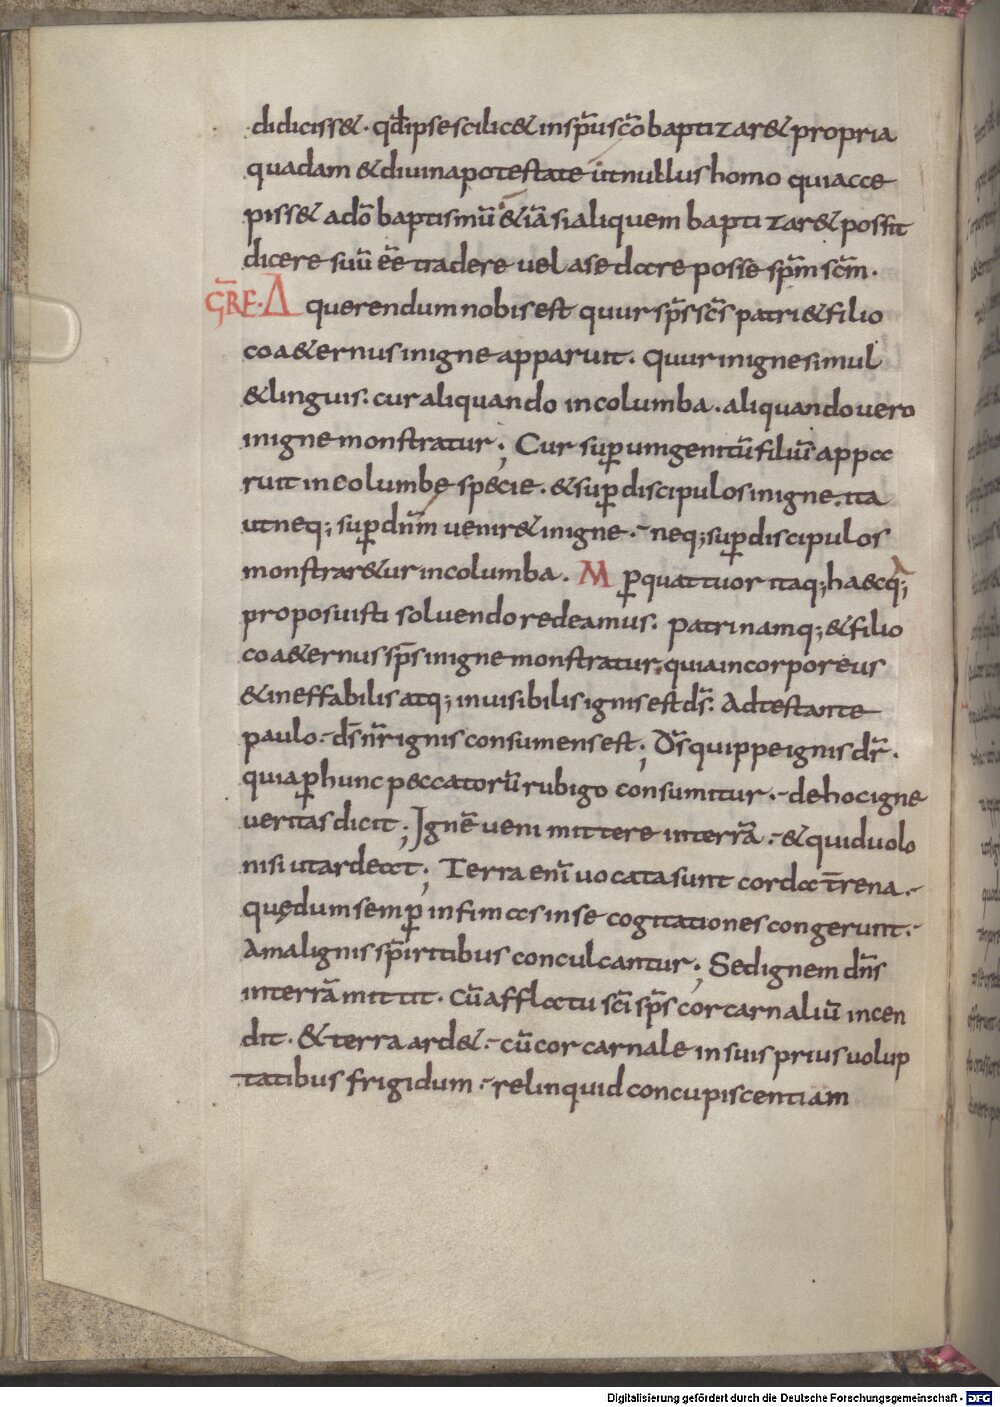 didiciss&. qđipse scilic& insp̄u sc̄o baptizar& propria
quadam & divina potestate ut nullus homo qui acce
piss& a dō baptismū & iā si aliquem baptizar& possit
dicere suū ēe tradere vel a se dare posse sp̄m sc̄m.
GRĒ. A querendum nobis est quur sp̄s sc̄s patri & filio
coa&ernus in igne apparuit. Quur in igne simul
& linguis: cur aliquando in columba. aliquando vero
in igne monstratur; Cur sup̄ unigenitū filiū appa
ruit in columbę specie. & sup̄ discipulos in igne. ita
ut neq; sup̄ dn̄m venir& in igne. neq; sup̄ discipulos
monstrar&ur in columba. M p̄ quattuor itaq; haec q;
proposuisti solvendo redeamus. patri namq; & filio
coa&ernus sp̄s in igne monstratur. quia incorporeus
& ineffabilis atq; invisibilis ignis est ds̄. Adtestante
paulo. ds̄ nr̄ ignis consumens est; Ds̄ quippe ignis dr̄.
quia p̄ hunc peccatorū rubigo consumitur. de hoc igne
veritas dicit; Ignē veni mittere in terrā. & quid volo
nisi ut ardeat; Terra enī vocata sunt corda tr̄rena.
quę dum semp̄ infimas in se cogitationes congerunt.
A malignis sp̄iritibus conculcantur; Sed ignem dn̄s
in terrā mittit. Cū afflatu sc̄i sp̄s cor carnaliū incen
dit. & terra ard&. cū cor carnale in suis prius volup
tatibus frigidum. relinquid concupiscentiam
Digitalisierung gefördert durch die Deutsche Forschungsgemeinschaft - DFG